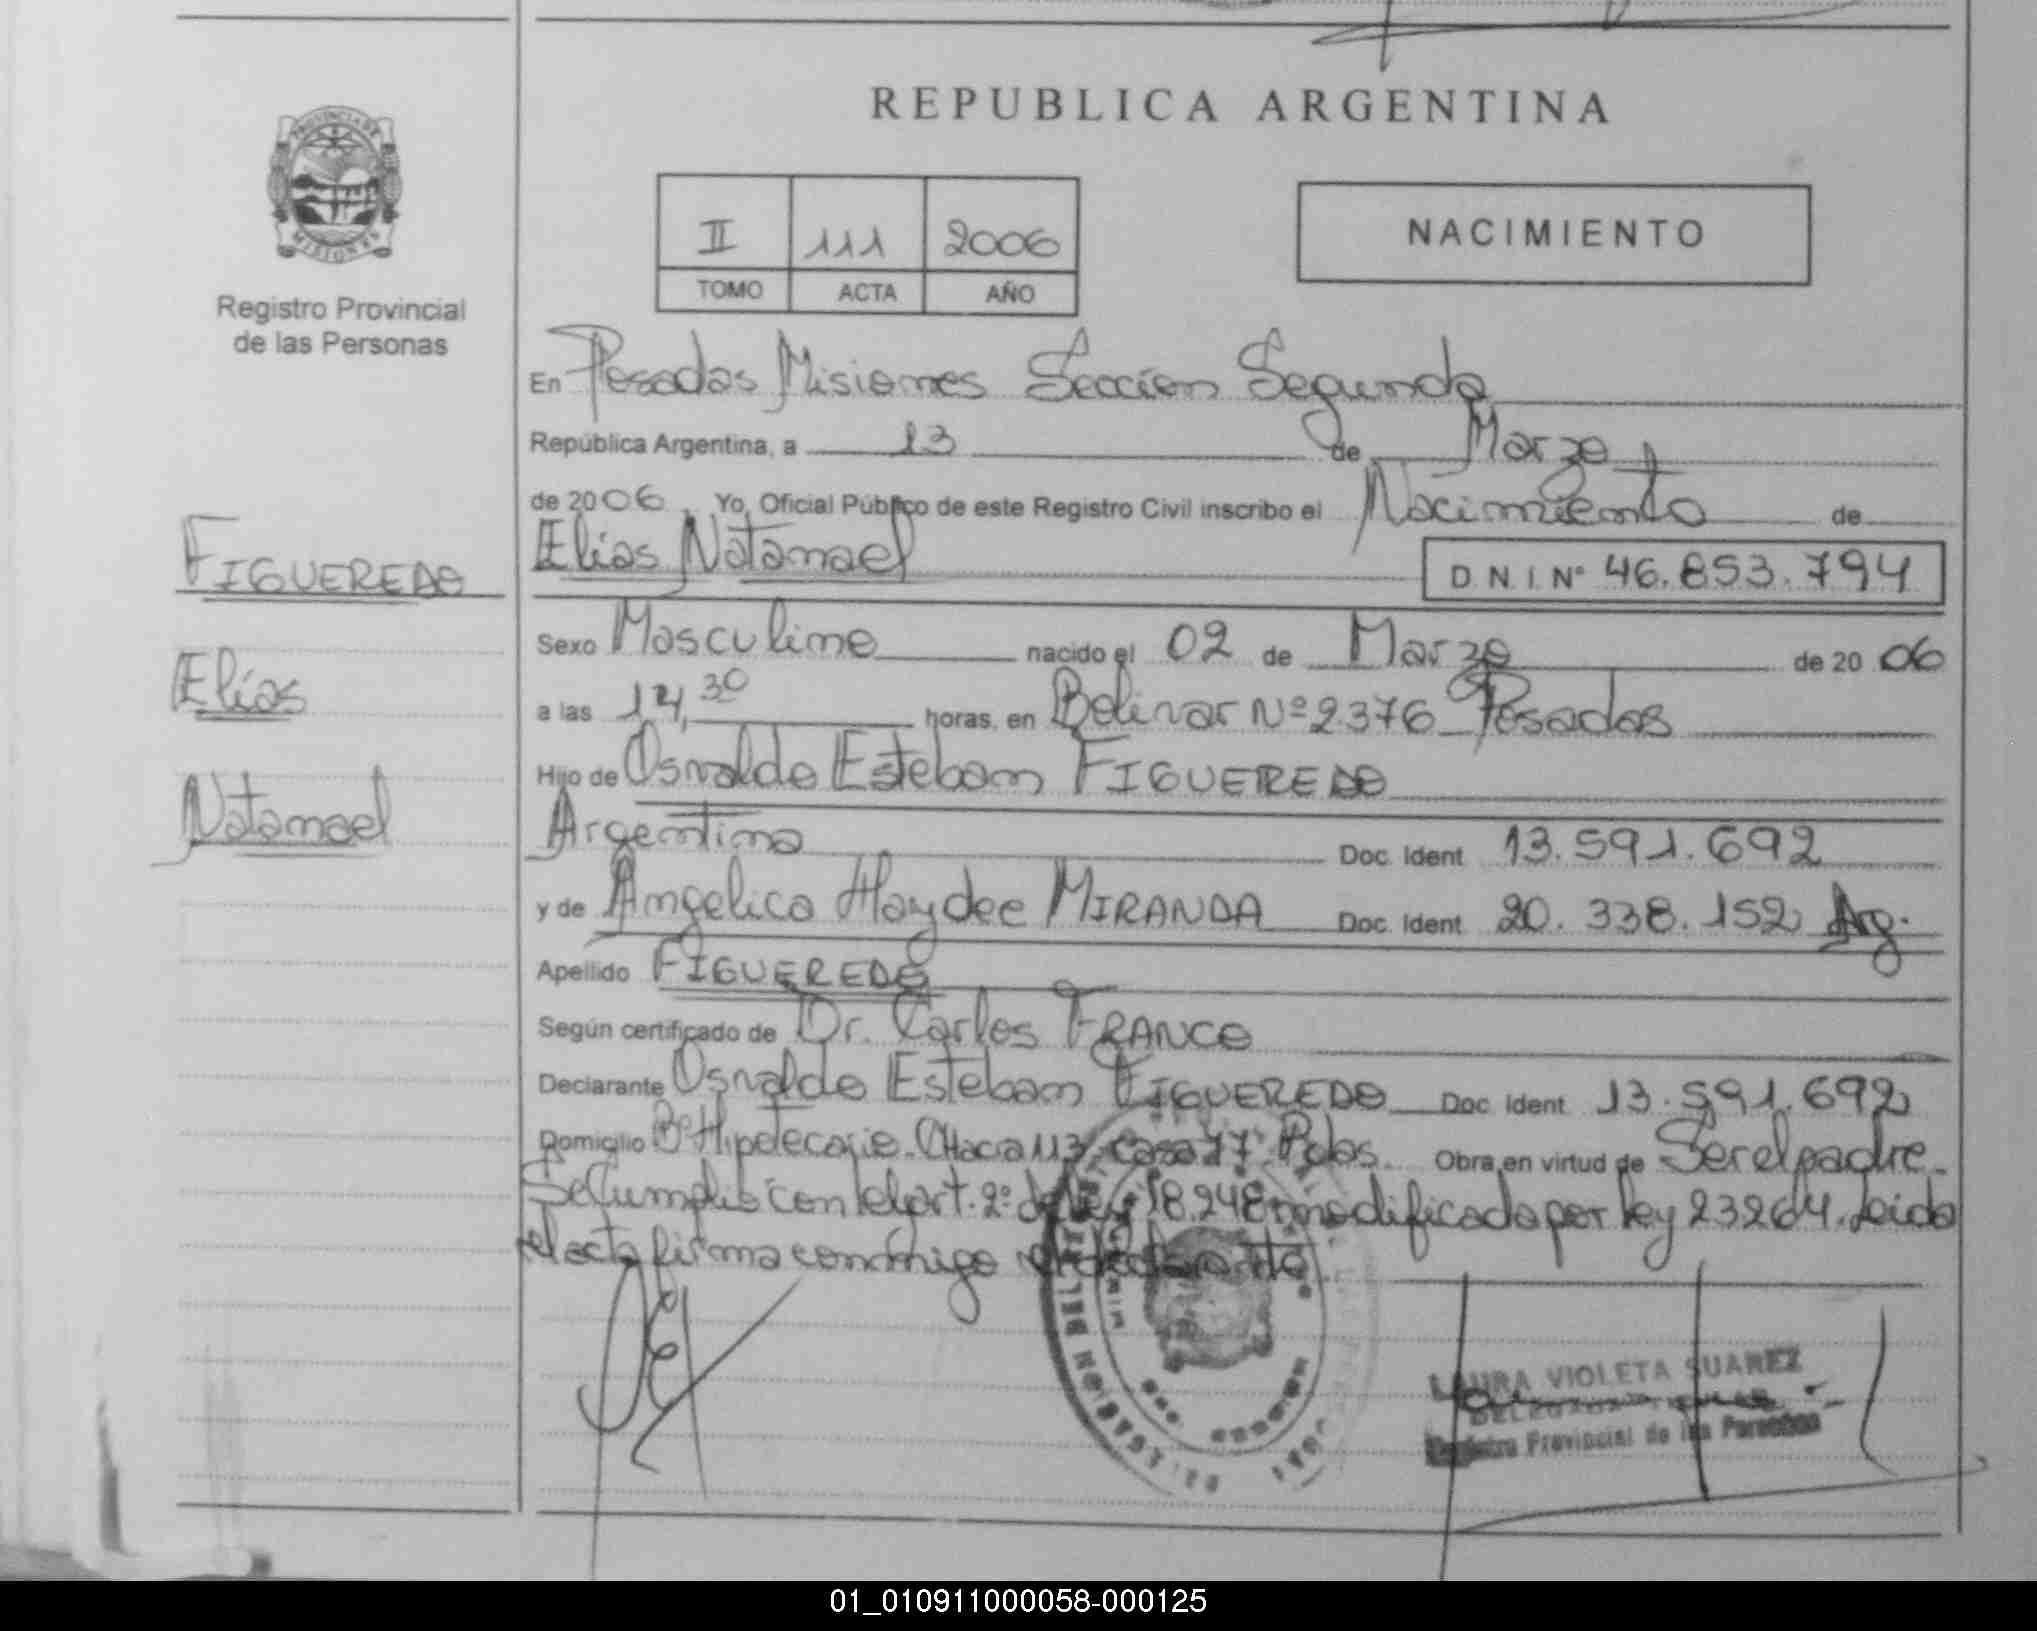 REPUBLICA ARGENTINA
PROVINCIA DE
MISIONES
Registro Provincial
de las Personas
II 111 2006
TOMO ACTA AÑO
NACIMIENTO
En Posadas Misiones Sección Segunda
República Argentina, a 13 de Marzo
de 2006 Yo, Oficial Público de este Registro Civil inscribo el Nacimiento de
Elías Natanael D.N.I. Nº 46.853.794
FIGUEREDO
Elías
Natanael
Sexo Masculino nacido el 02 de Marzo de 2006
a las 14,30 horas, en Bolivar Nº 2376 Posadas
Hijo de Osvaldo Esteban FIGUEREDO
Argentina Doc. Ident 13.591.692
y de Angelica Haydee MIRANDA Doc. Ident 20.338.152 Arg.
Apellido FIGUEREDO
Según certificado de Dr. Carlos FRANCO
Declarante Osvaldo Esteban FIGUEREDO Doc. Ident 13.591.692
Domicilio Bº Hipotecario. CHacra 113 casa 77 Pdas. Obra en virtud de Ser el padre.
Se Cumplio con el art. 2º de ley 18.248 modificada por ley 23264. Leida
el acta firma conmigo el declarante
LAURA VIOLETA SUAREZ
DELEGADA TITULAR
Registro Provincial de las Personas
01_010911000058-000125